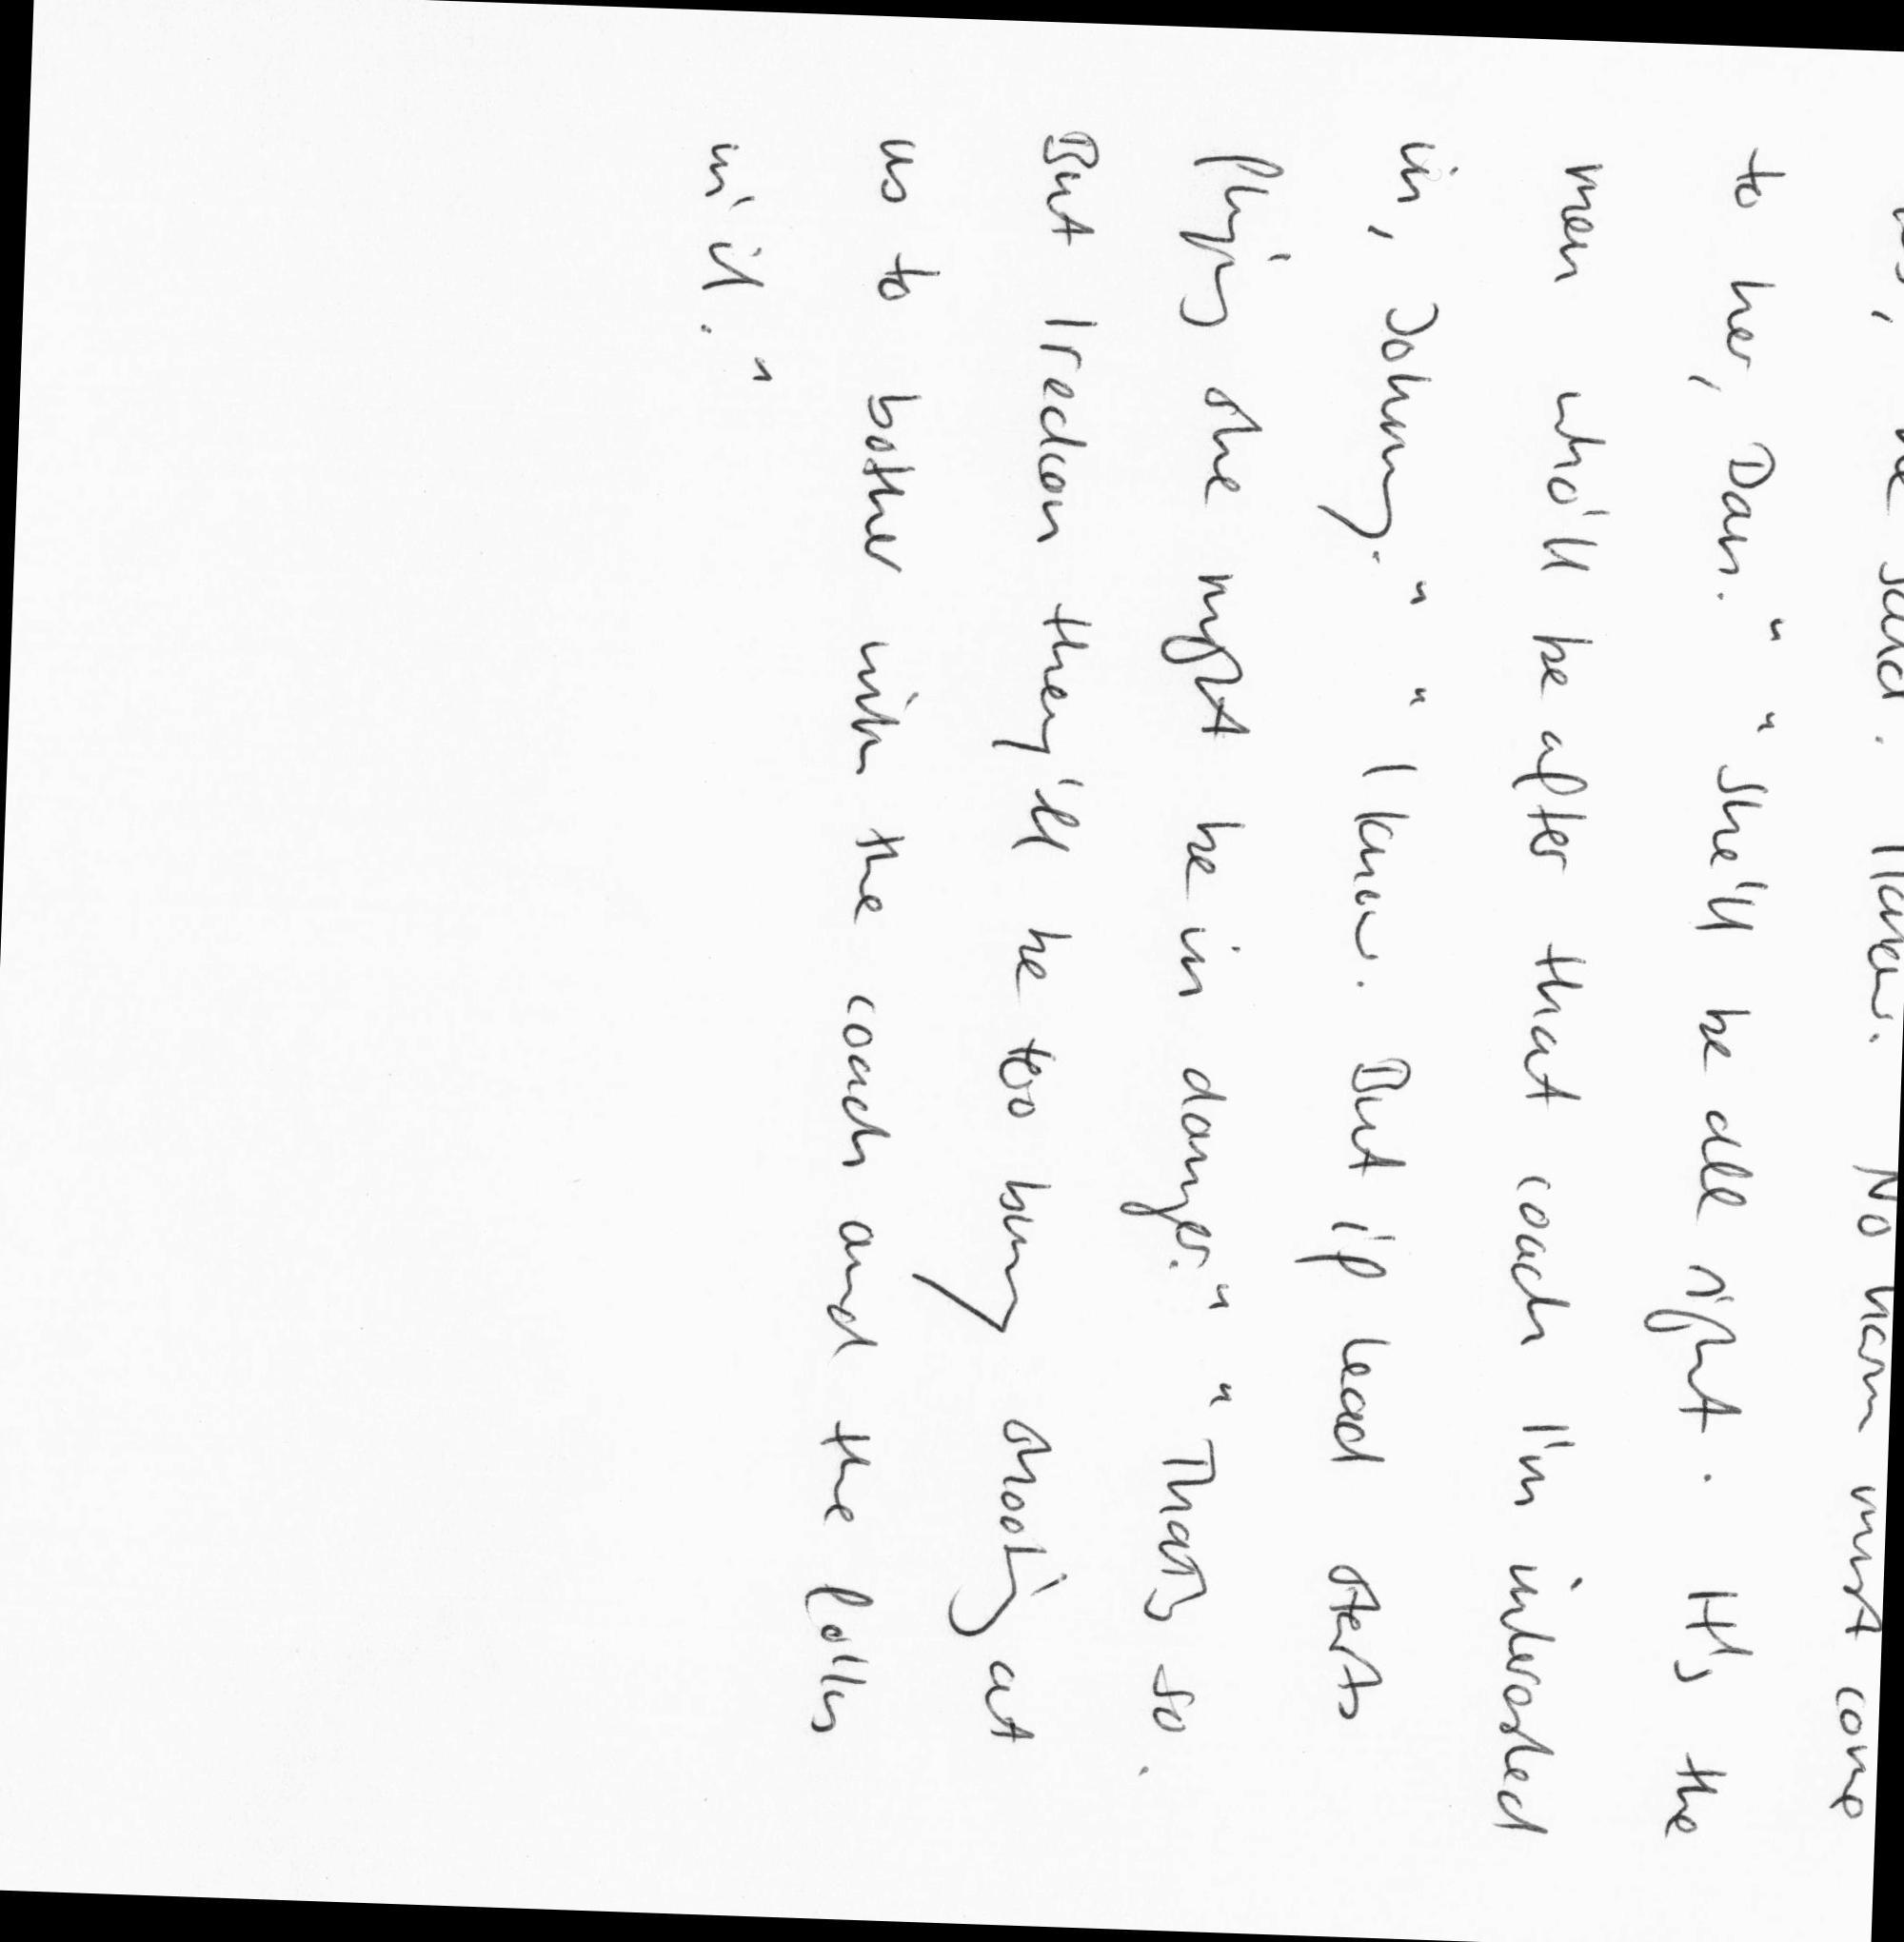 he said. Havn. No harm must come
to her, Dan." "She'll be all right. It's the
men who'll be after that coach I'm interested
in, Johnny." "I know. But if lead starts
flying she might be in danger." "That's so.
But I reckon they'll be too busy shooting at
us to bother with the coach and the folks
in it."